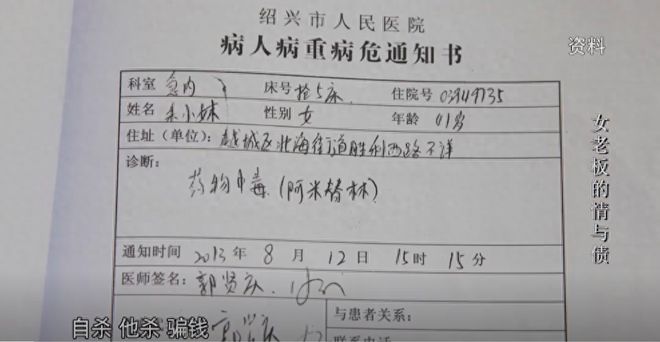 绍兴市人民医院
病人病重病危通知书
资料
科室 急内 床号 抢5床 住院号 03949735
姓名 小妹 性别 女 年龄 41岁
住址（单位）：越城区北海街道胜利西路不详
诊断：
药物中毒（阿米替林）
通知时间 2013年 8月 12日 15时 15分
医师签名：郭贤庆
与患者关系：
女老板的情与债
自杀 他杀 骗钱